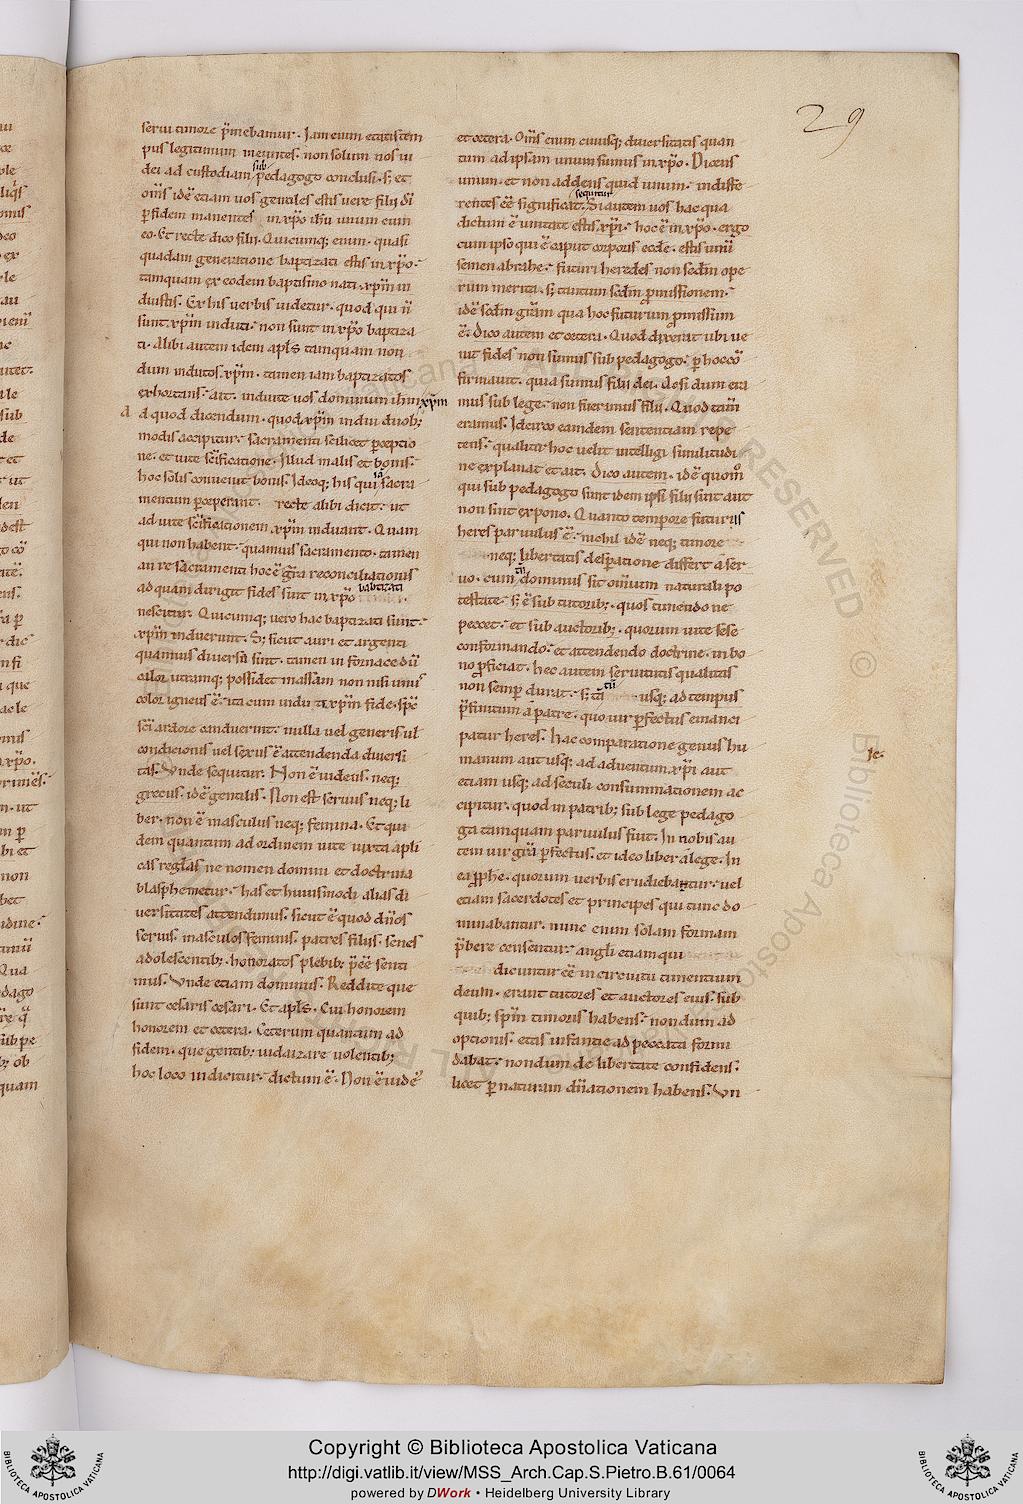 29
serui timore p̄mebamur. Iam enim etatis tem
pus legitimum ineuntes. non solum nos iu
dei ad custodiam sub pedagogo conclusi. s; et
om̄s idē etiam uos gentiles estis uere filii dī
ꝑ fidem manentes in xp̄o ih̄u unum cum
eo. Et recte dico filii. Quicumq; enim. quasi
quadam generatione baptizati estis in xp̄o.
tamquam ex eodem baptismo nati xp̄m in
duistis. Ex his uerbis uidetur. quod qui n̄
sunt xp̄m induti. non sunt in xp̄o baptiza
ti. Alibi autem idem apl̄s tamquam non
dum indutos xp̄m. tamen iam baptizatos
exhortans. ait. induite uos dominum ih̄m xp̄m
Ad quod dicendum. quod xp̄m indui duob;
modis accipitur. sacramenti scilicet ꝑceptio
ne. et uite sc̄ificatione. Illud malis et bonis.
hoc solis conuenit bonis. Ideoq; his qui sacra
mentum ꝑceperant. recte alibi dicit. ut
ad uite sc̄ificationem xp̄m induant. Quam
qui non habent. quamuis sacramento. tamen
an re sacramenti hoc ē gr̄a reconciliationis
ad quam dirigit fides sint in xp̄o babtizati
nescitur. Quicumq; uero hac baptizati sunt.
xp̄m induerunt. S; sicut auri et argenti
quamuis diuersa sint. tamen in fornace dū
calor utramq; possidet massam non nisi unus
color igneus ē. ita cum induti xp̄m fide. sp̄c
sc̄i ardore conduerint. nulla uel generis ul
condicionis uel sexus ē attendenda diuersi
tas. Vnde sequitur. Non ē iudeus. neq;
grecus. idē gentilis. Non est seruus neq; li
ber. non ē masculus neq; femina. Et qui
dem quantum ad ordinem uite iuxta apl̄i
cas reglas ne nomen domini et doctrina
blasphemetur. has et huiusmodi alias di
uersitates attendimus. sicut ē quod dn̄os
seruis. masculos feminis. patres filiis. senes
adolescentib;. honoratos plebib; p̄eē senti
mus. Vnde etiam dominus. Reddite que
sunt cesaris cesari. Et apl̄s. Cui honorem
honorem et cetera. Ceterum quantum ad
fidem. que gentib; iudaizare uolentib;
hoc loco indicitur. dictum ē. Non ē iudeꝰ
et cetera. Om̄s enim cuiusq; diuersitatis quan
tum ad ipsam unum sumus in xp̄o. Dicens
unum. et non addens quid unum. indiffe
rentes eē significat. sequitur Si autem uos hac qua
dictum ē unitate estis xp̄i. hoc ē in xp̄o. ergo
cum ipso qui ē caput corporis eccl̄e. estis unū
semen abrahe. futuri heredes non sc̄dm ope
rum merita. s; tantum sc̄dm ꝓmissionem.
idē sc̄dm gr̄am qua hoc futurum ꝓmissum
ē. Dico autem et cetera. Quod dixerat ubi ue
nit fides non sumus sub pedagogo. ꝑ hoc cō
firmauit. quia sumus filii dei. Q̄si dum era
mus sub lege. non fuerimus filii. Quod tam̄
eramus. Idcirco eamdem sententiam repe
tens. qualiter hoc uelit intelligi similitudi
ne explanat et ait. Dico autem. idē quom̊
qui sub pedagogo sunt idem ipsi filii sint aut
non sint expono. Quanto tempore futurus
heres paruulus ē. nichil idē neq; timore
neq; libertatis desperatione differt a ser
uo. cum tn̄ dominus sit omnium naturali po
testate. s; ē sub tutorib;. quos timendo ne
peccet. et sub auctorib;. quorum uite sese
conformando. et attendendo doctrine. in bo
no ꝓficiat. hec autem seruitutis qualitas
non semꝑ durat. s; usq; ad tempus
p̄finitum a patre. quo uir ꝑfectus emanci
patur heres. Hac comparatione genus hu
manum aut usq; ad aduentum xp̄i aut
etiam usq; ad seculi consummationem ac
cipitur. quod in patrib; sub lege pedago
ga tamquam paruulus fuit. In nobis au
tem uir gr̄a ꝑfectus. et ideo liber a lege. In
ea ꝓphe. quorum uerbis erudiebantur. uel
etiam sacerdotes et principes qui tunc do
minabantur. nunc enim solam formam
p̄bere censentur. angli etiam qui
dicuntur eē in circuitu timentium
deum. erant tutores et auctores eius. sub
quib; sp̄m timoris habens. nondum ad
optionis. etas infantie ad peccata formi
dabat. nondum de libertate confidens.
licet ꝑ naturam dn̄ationem habens. Vn
Copyright © Biblioteca Apostolica Vaticana
http://digi.vatlib.it/view/MSS_Arch.Cap.S.Pietro.B.61/0064
powered by DWork • Heidelberg University Library
BIBLIOTECA APOSTOLICA VATICANA
BIBLIOTECA APOSTOLICA VATICANA